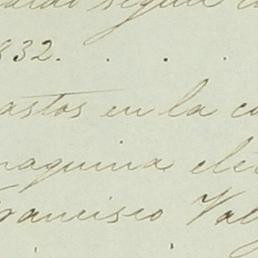 según
832. . . .
astos en la co
maquina elé
Francisco Val